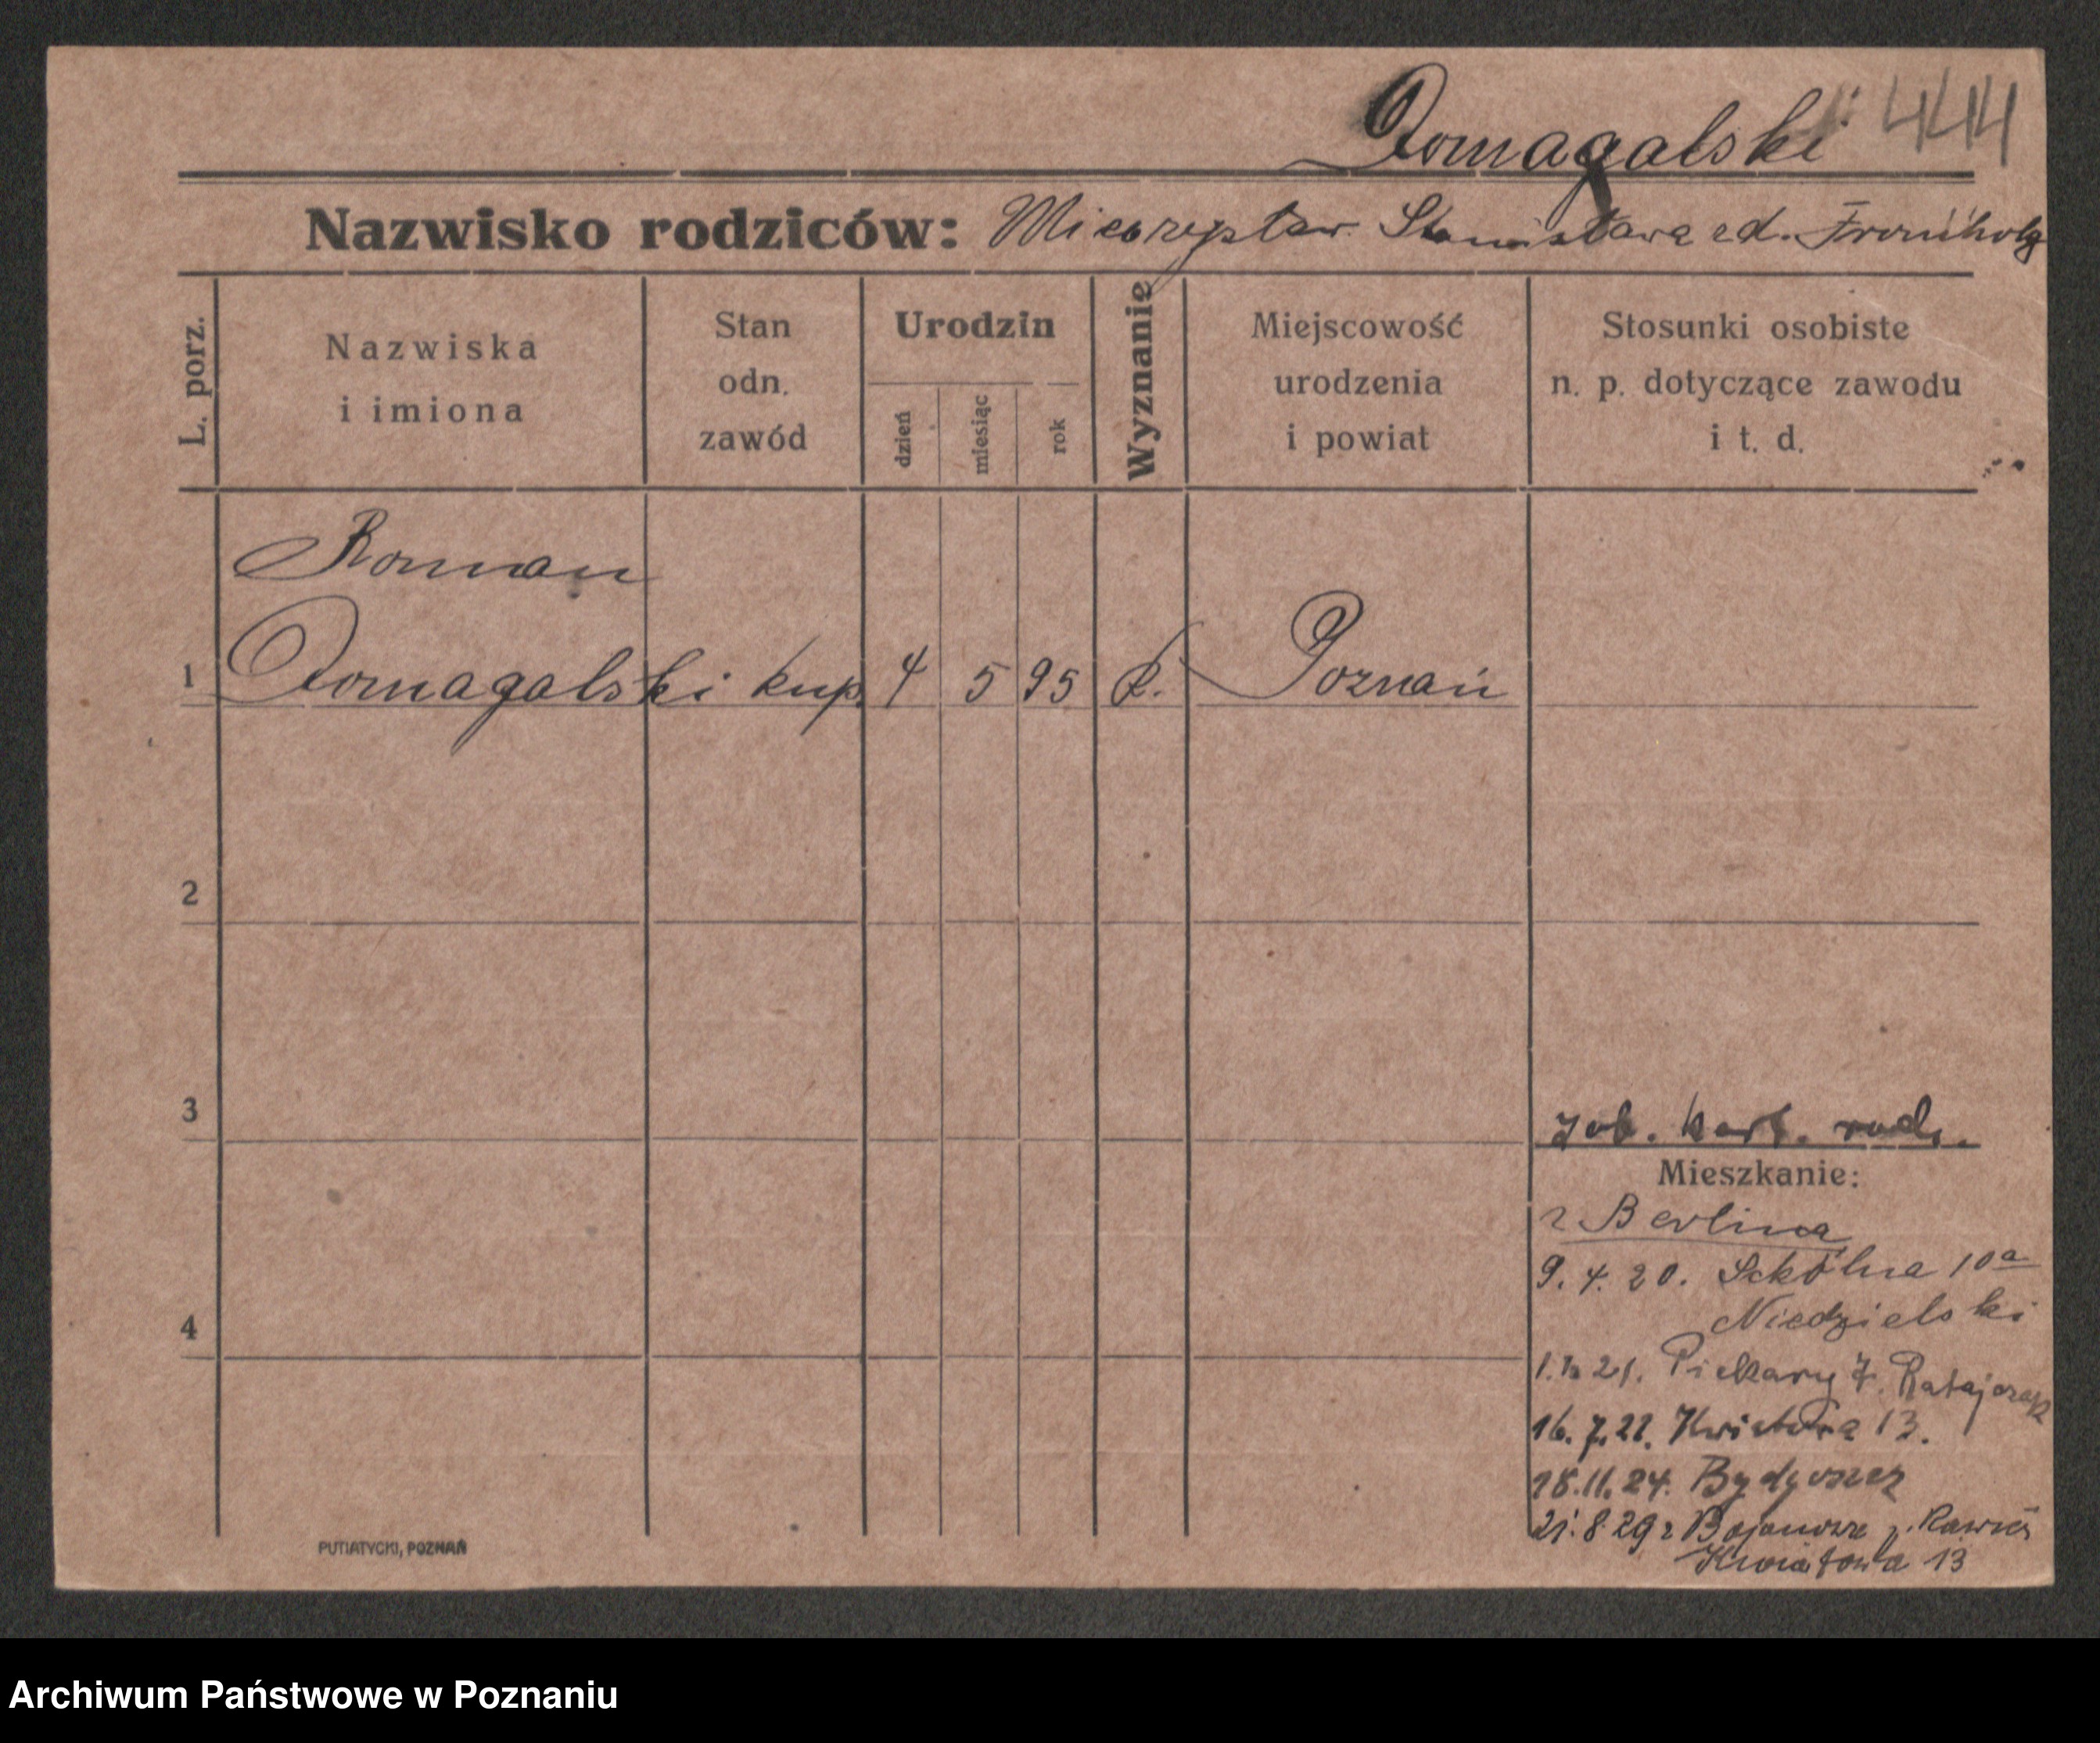 Domagalski 444
Nazwisko rodziców: Mieczysław Stanisława zd. Fromholz
L. porz.
Nazwiska
i imiona
Stan
odn.
zawód
Urodzin
dzień
miesiąc
rok
Wyznanie
Miejscowość
urodzenia
i powiat
Stosunki osobiste
n. p. dotyczące zawodu
i t. d.
Roman
1 Domagalski kup. 4 5 95 k. Poznań
2
3
Zob. kart. rodz.
Mieszkanie:
z Berlina
9. 4. 20. Szkolna 10a
Niedzielski
4
21. Piekary 7. Ratajczak
16. 7. 21. Kwiatowa 13.
18. 11. 24. Bydgoszcz
21. 8. 29 z Bojanowa p. Rawicz
Kwiatowa 13
PUTIATYCKI, POZNAŃ
Archiwum Państwowe w Poznaniu